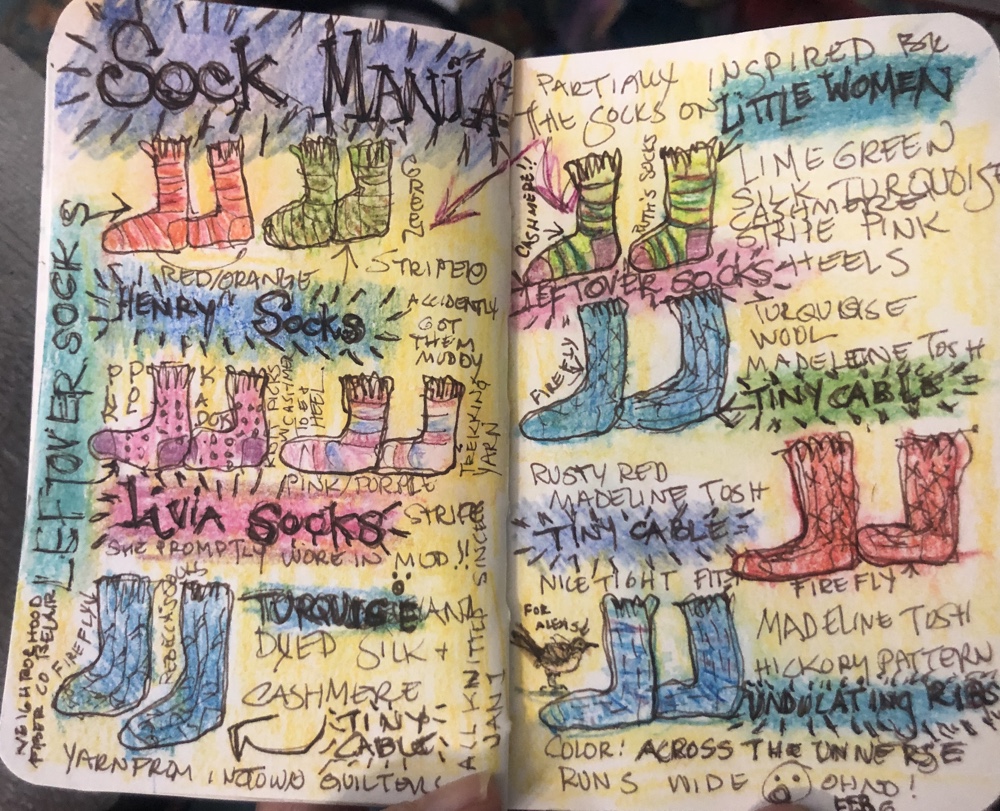 SOCK MANIA
LEFTOVER SOCKS
GREEN
RED/ORANGE
STRIPED
HENRY SOCKS
ACCIDENTLY
GOT
THEM
MUDDY
POLKA
DOT
KNIT PICKS
CASHMERE
TOE +
HEEL
TREKKING
YARN
PINK/PURPLE
STRIPE
LIVIA SOCKS
SHE PROMPTLY WORE IN MUD!!
FIREFLY
REBECCA'S SOCKS
HAND
DYED SILK +
CASHMERE
TINY
CABLE
NEIGHBORHOOD
YARN FROM INTOWN QUILTERS
ALL KNITTED SINCE
JAN 1
PARTIALLY INSPIRED BY
THE SOCKS ON LITTLE WOMEN
CASHMERE!!
RUTH'S SOCKS
LIME GREEN
SILK TURQUOISE
CASHMERE
STRIPE PINK
HEELS
LEFTOVER SOCKS
FIREFLY
TURQUOISE
WOOL
MADELINE TOSH
TINY CABLE
RUSTY RED
MADELINE TOSH
TINY CABLE
NICE TIGHT FIT
FIREFLY
FOR
ALEXIS!
MADELINE TOSH
HICKORY PATTERN
UNDULATING RIBS
COLOR! ACROSS THE UNIVERSE
RUNS WIDE OH NO!